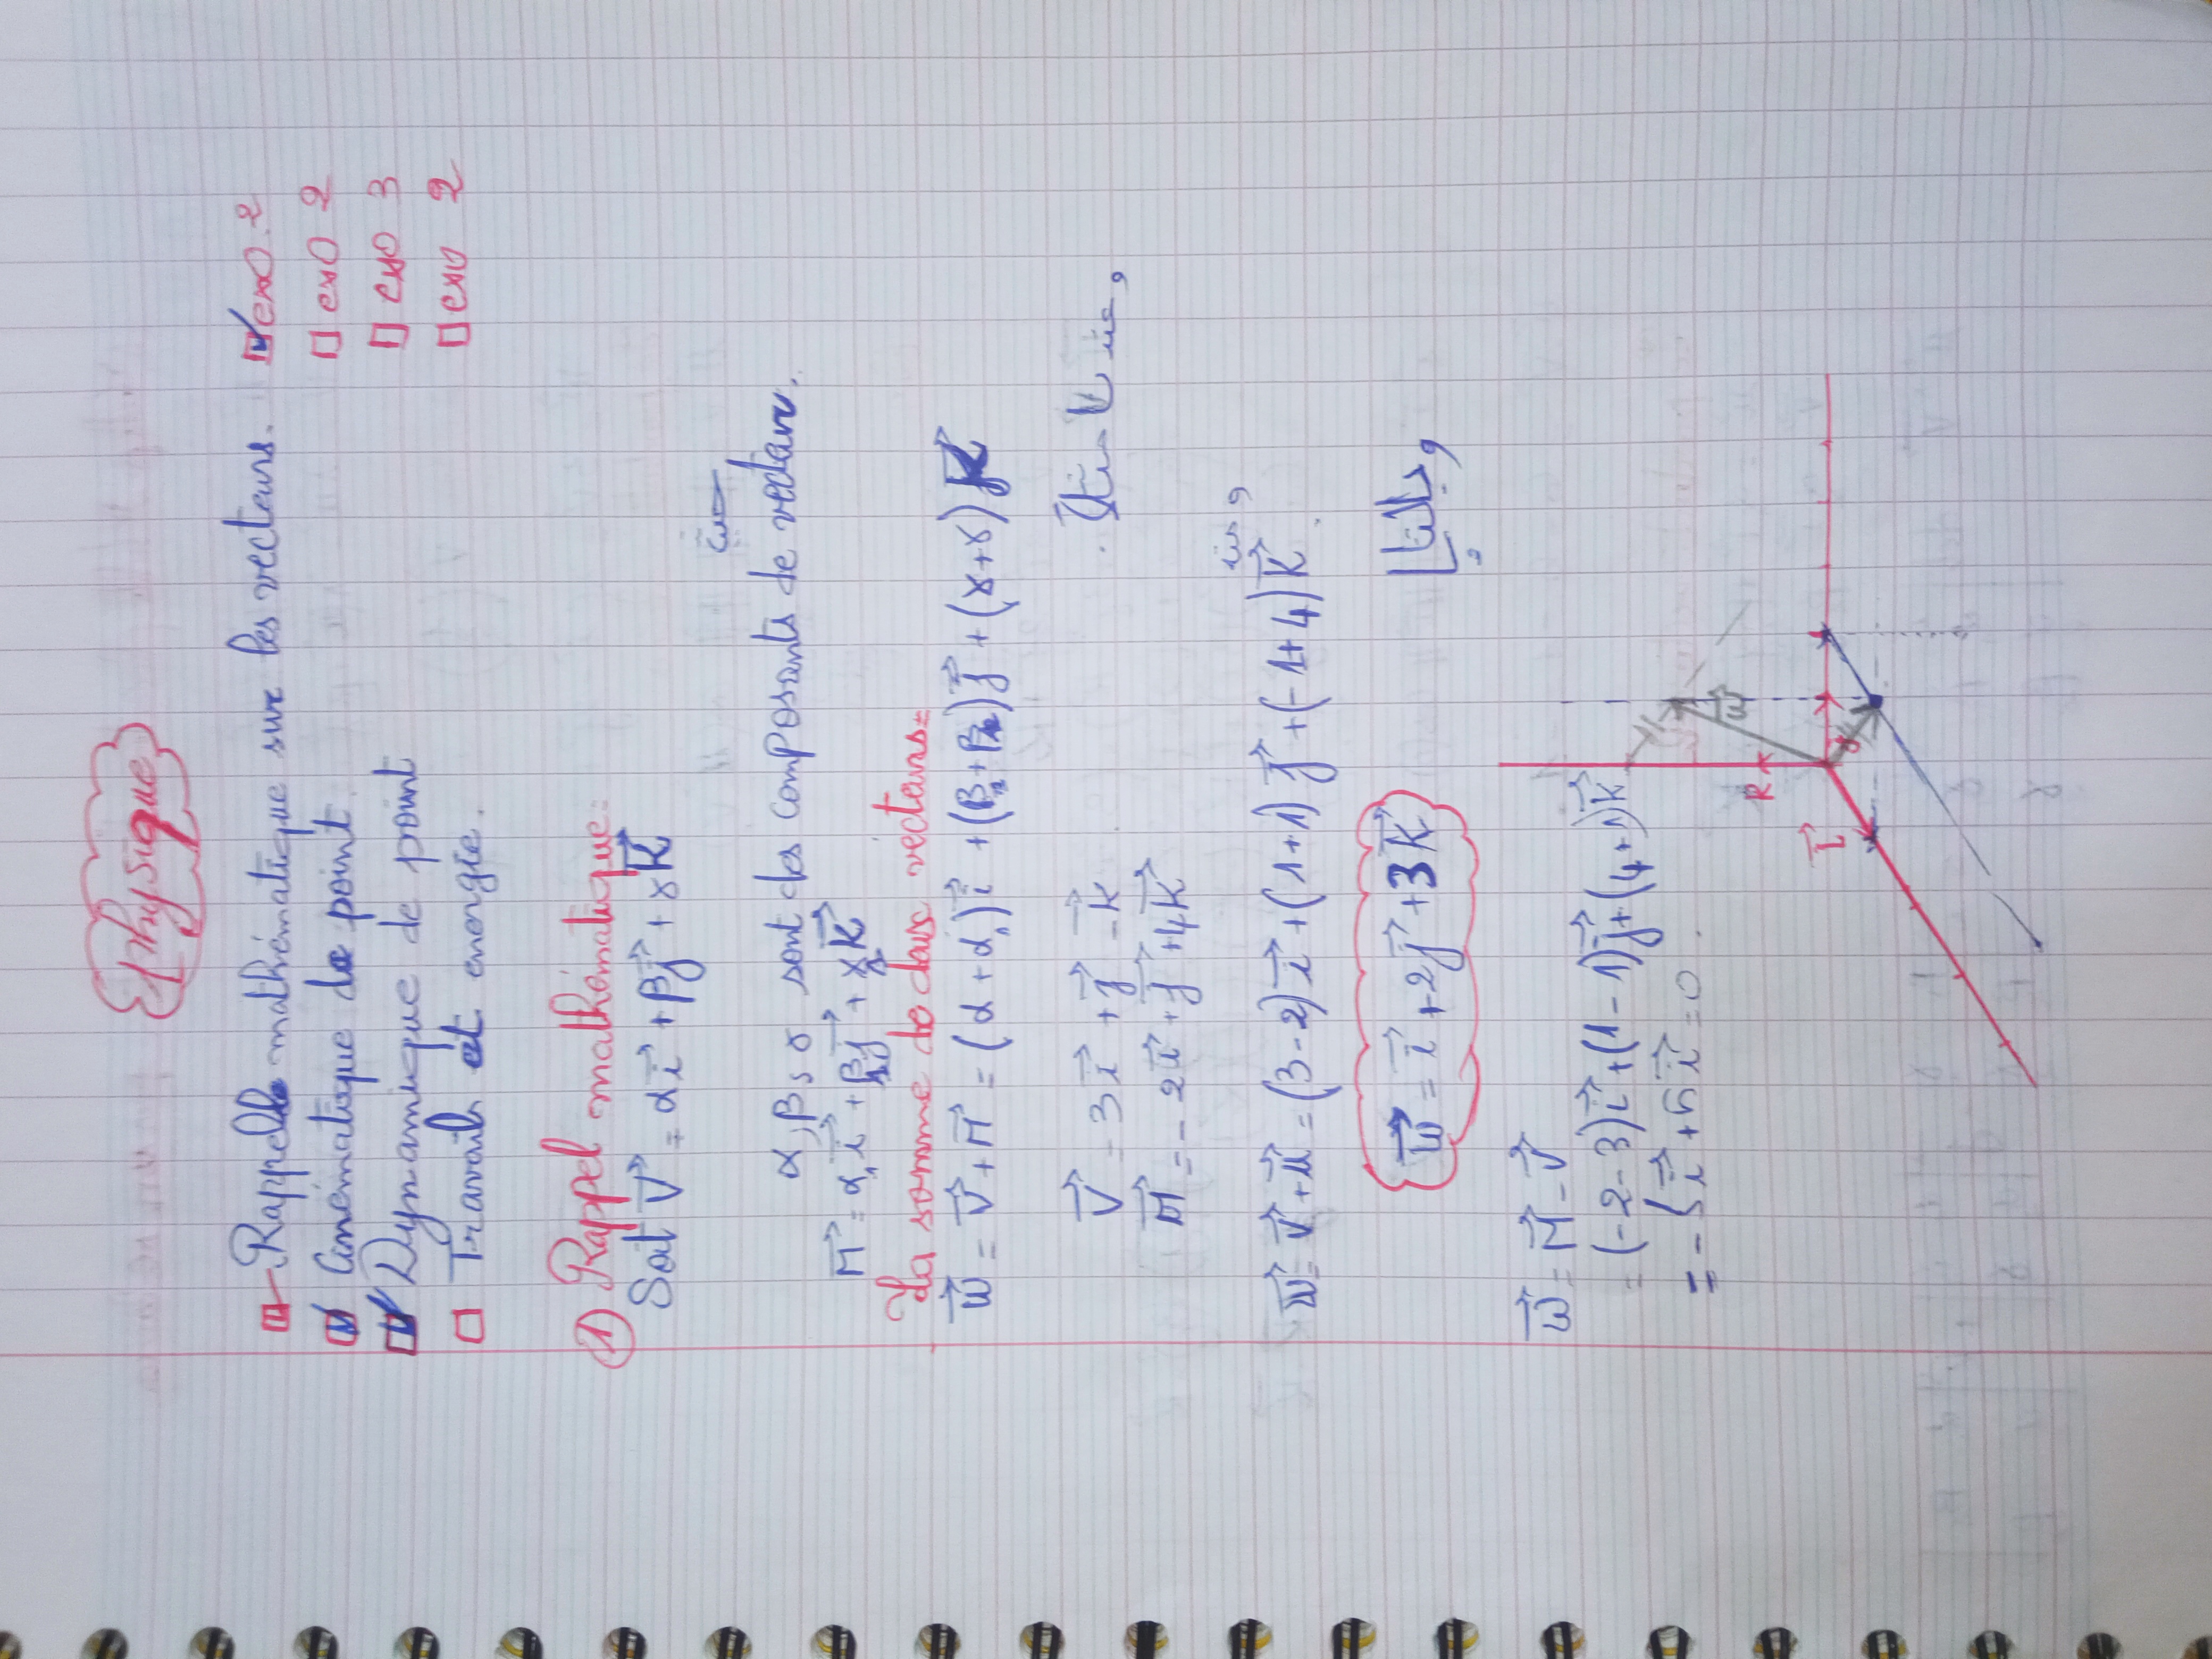 Physique
Rappelle mathématique sur les vecteurs. exo 2
Cinématique de point exo 2
Dynamique de point exo 3
Travail et energie. exo 2
① Rappel mathématique:
Soit V⃗ = αi⃗ + βj⃗ + γK⃗
α, β, γ sont des composants de vectarv.
M⃗ = α₁i⃗ + βj⃗ + γK⃗
La somme de deux vecteurs=
W⃗ = V⃗ + M⃗ = (α + α₁)i⃗ + (β + β)j⃗ + (γ + γ)K⃗
V⃗ = 3i⃗ + j⃗ - K⃗
M⃗ = -2i⃗ + j⃗ + 4K⃗
W⃗ = V⃗ + u⃗ = (3-2)i⃗ + (1+1)j⃗ + (-1+4)K⃗
W⃗ = i⃗ + 2j⃗ + 3K⃗
W⃗ = M⃗ - V⃗
= (-2-3)i⃗ + (1-1)j⃗ + (4+1)K⃗
= -5i⃗ + 5i⃗ = 0
K
i⃗
j
W⃗